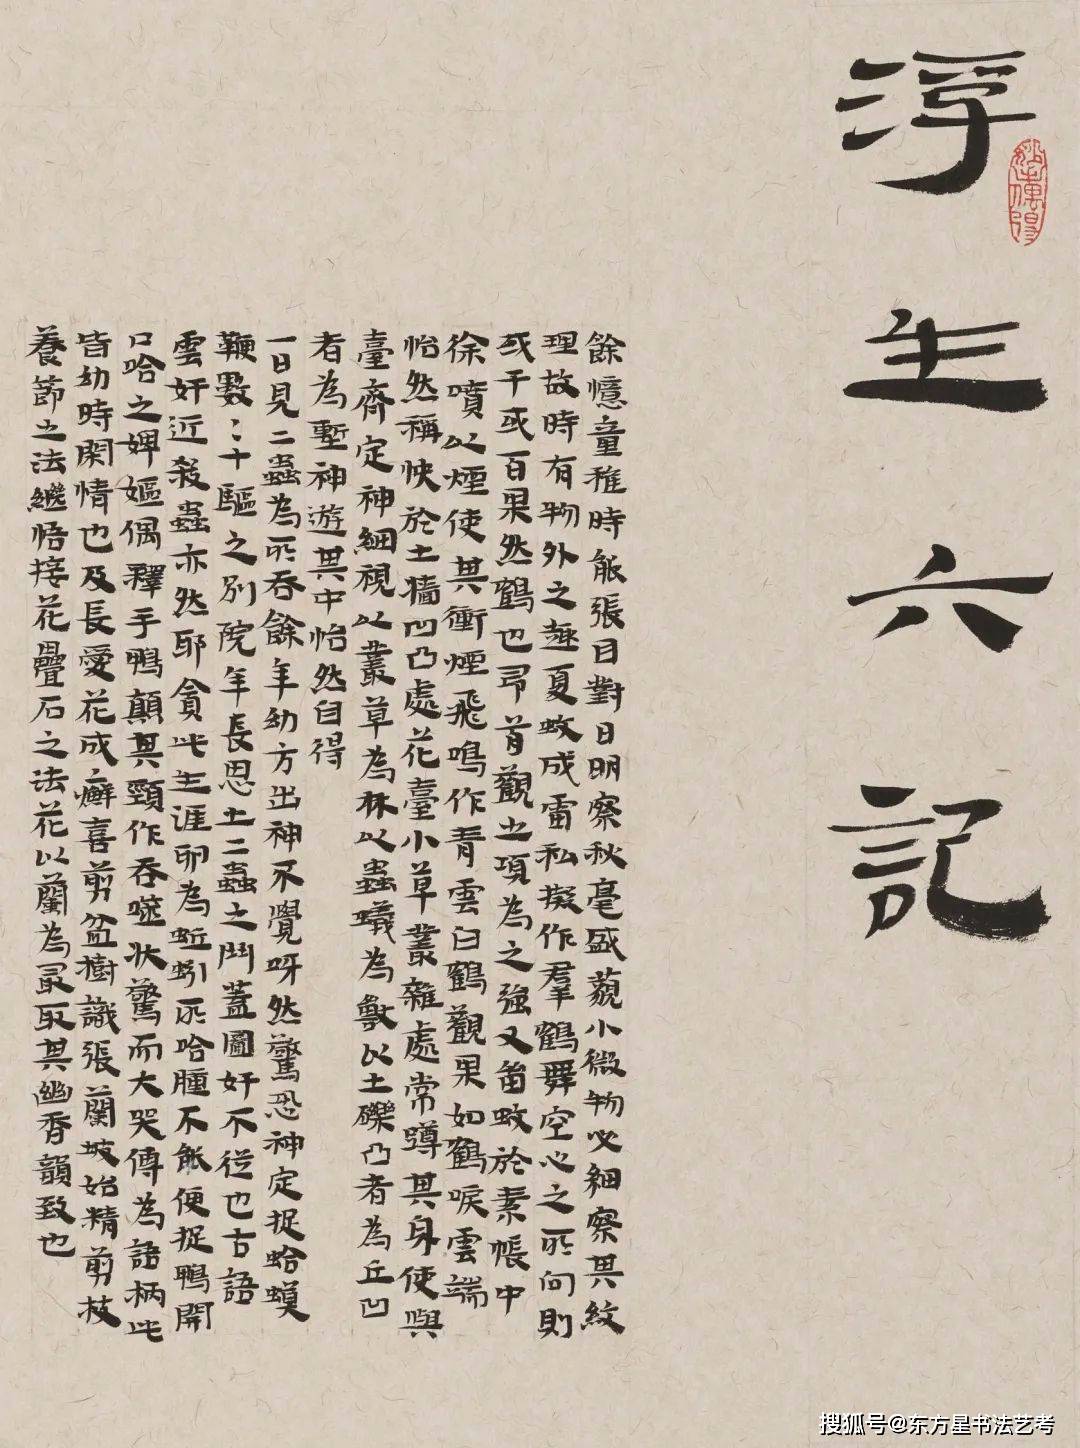 浮生六記
餘憶童稚時能張目對日明察秋毫盛藐小微物必細察其紋
理故時有物外之趣夏蚊成雷私擬作羣鶴舞空心之所向則
或千或百果然鶴也昂首觀之項為之強又留蚊於素帳中
徐噴以煙使其衝煙飛鳴作青雲白鶴觀果如鶴唳雲端
怡然稱快於土牆凹凸處花臺小草叢雜處常蹲其身使與
臺齊定神細視以叢草為林以蟲蟻為獸以土礫凸者為丘凹
者為塹神遊其中怡然自得
一日見二蟲為所吞餘年幼方出神不覺呀然驚恐神定捉蛤蟆
鞭數〻十驅之別院年長思土二蟲之鬥蓋圖奸不從也古語
雲奸近殺蟲亦然耶貪此生涯卵為蚯蚓所哈腫不能便捉鴨開
口哈之婢嫗偶釋手鴨顛其頸作吞噬狀驚而大哭傳為語柄此
皆幼時閑情也及長愛花成癖喜剪盆樹識張蘭坡始精剪枝
養節之法繼悟接花疊石之法花以蘭為最取其幽香韻致也
搜狐号@东方星书法艺考